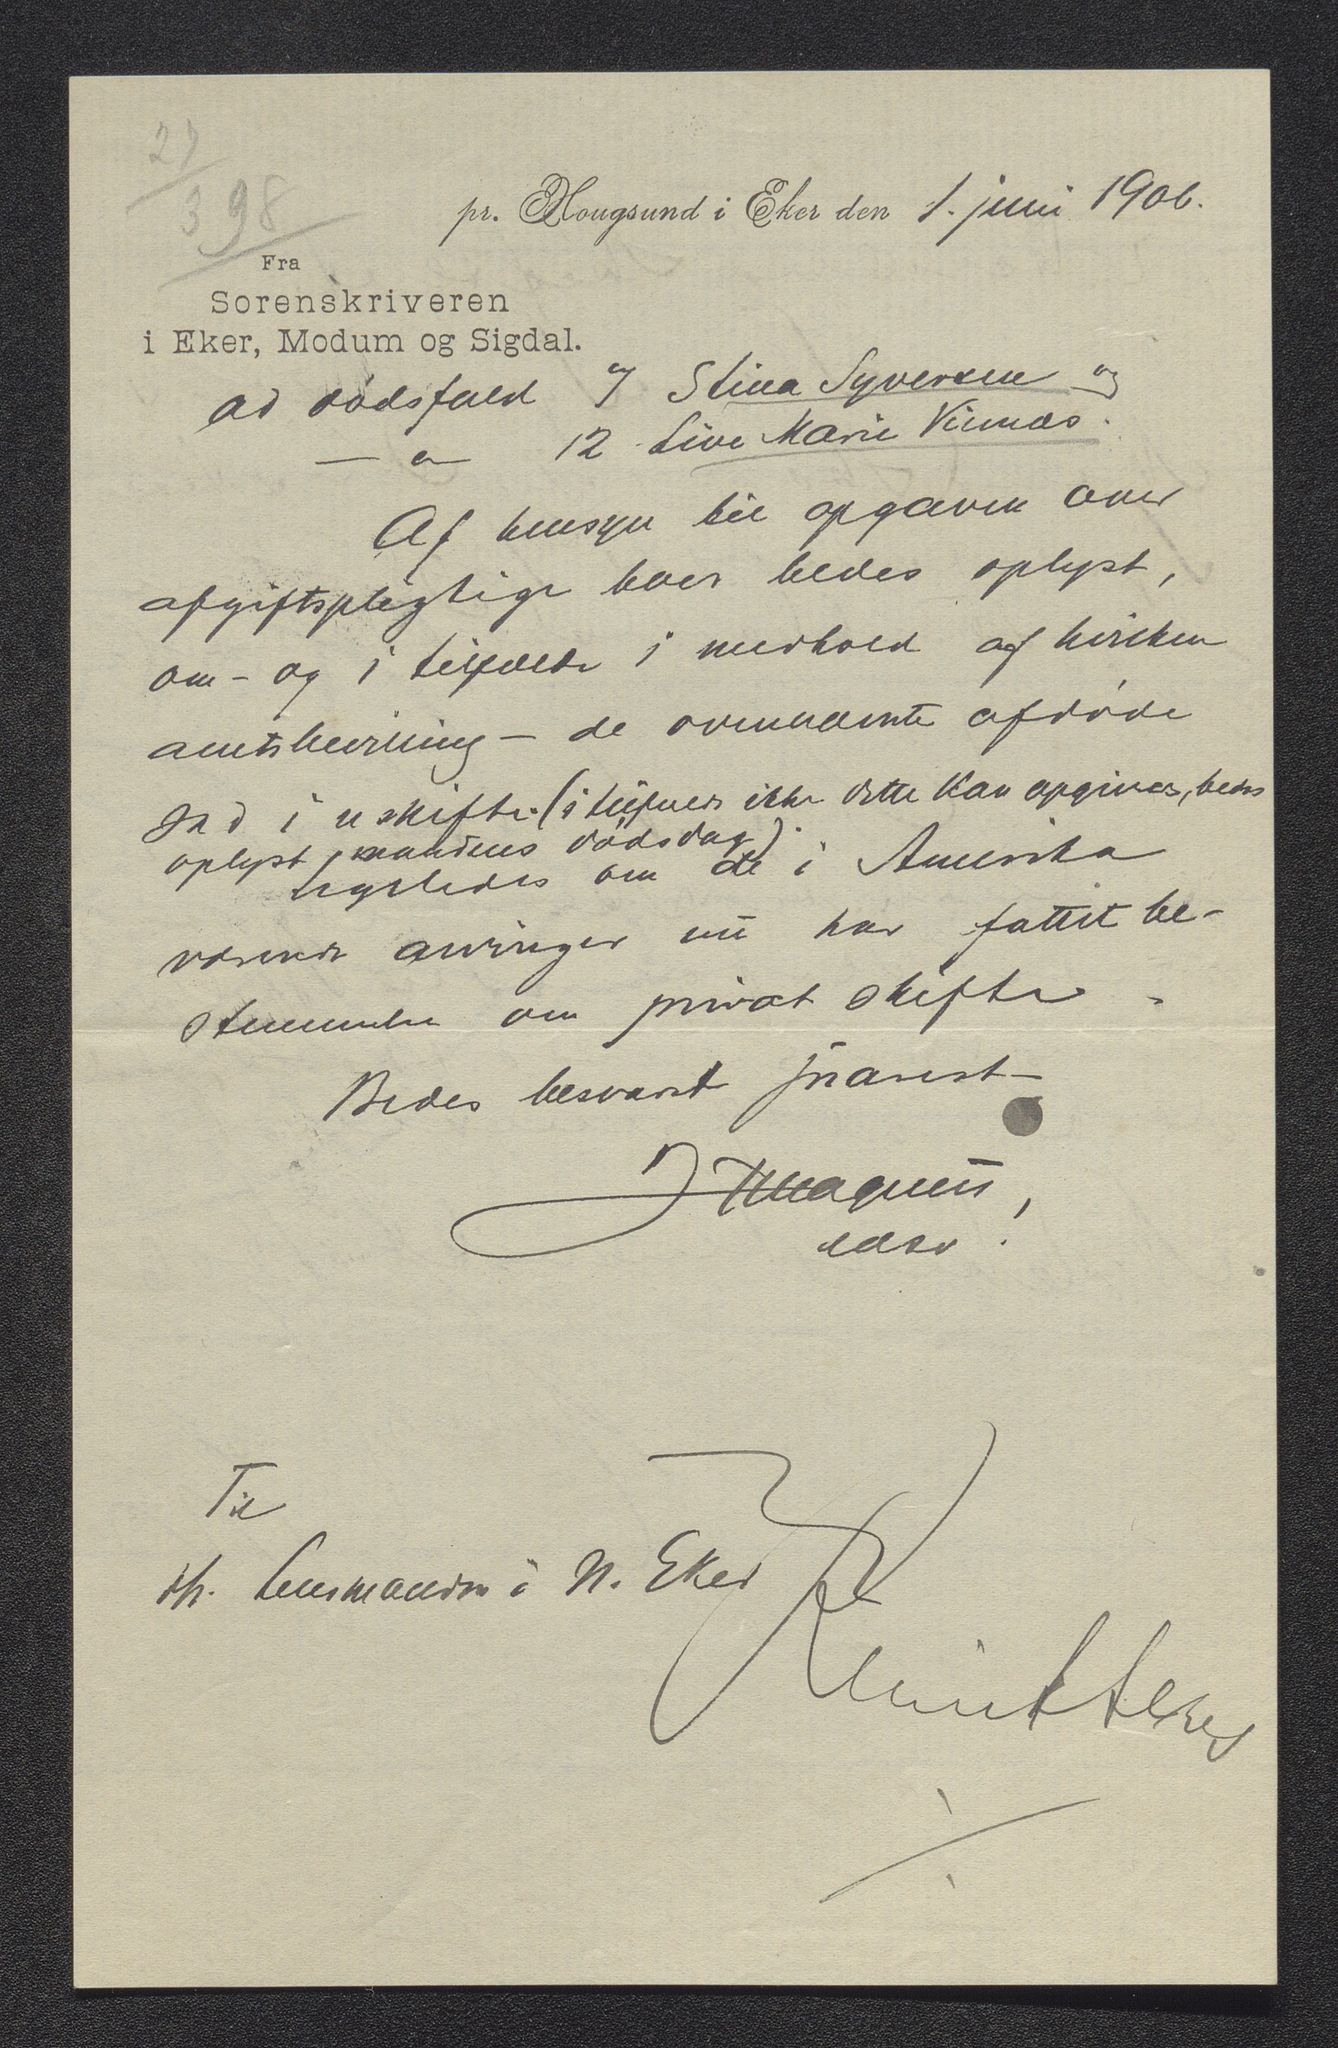 27
398
pr. Hougsund i Eker den 1. juni 1906.
Fra
Sorenskriveren
i Eker, Modum og Sigdal.
ad dødsfald 7 Stina Syversen og
— " — 12 Live Marie Vinnæs.
Af hensyn til opgaven over
afgiftspligtige boer bedes oplyst,
om - og i tilfælde i medhold af hvilken
amtsbevilling - de ovennævnte afdøde
sad i uskifte. (i tilfælde ikke dette kan opgives, bedes
oplyst mandens dødsdag).
Ligeledes om de i Amerika
værende arvinger nu har fattet be-
stemmelse om privat skifte.
Bedes besvaret snarest
Magnus,
edsv.
Til
Hr. Lensmanden i N. Eker